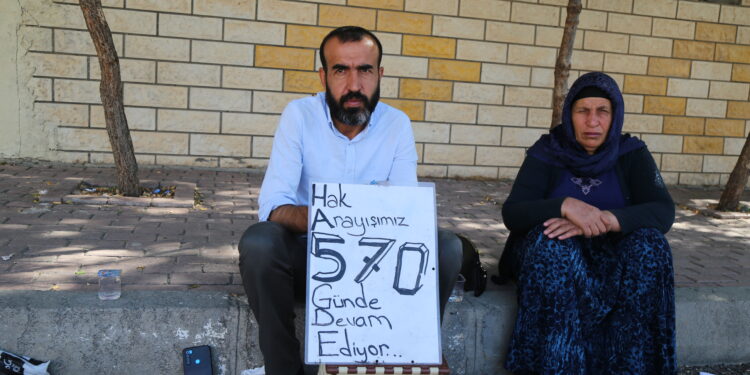 Hak
Arayışımız
570
Günde
Devam
Ediyor...